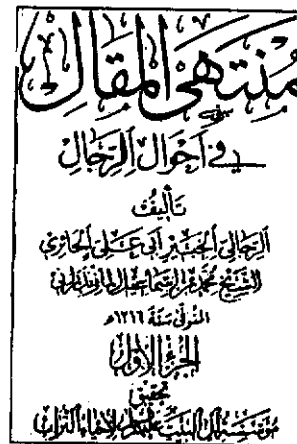 مُنتَهىَ المَقَال
في أَحوَالِ الرِّجَالِ
تأليف
الرجالي الخبير أبي علي الحائري
الشيخ محمد بن إسماعيل المازندراني
المتوفى سنة ١٢١٦هـ
الجزء الأول
تحقيق
مؤسسة آل البيت عليهم السلام لإحياء التراث